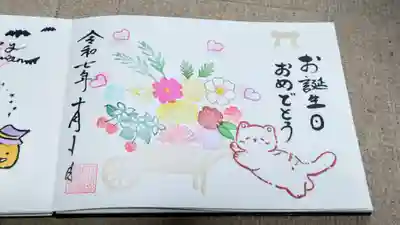 お誕生日
おめでとう
令和七年
十月十日